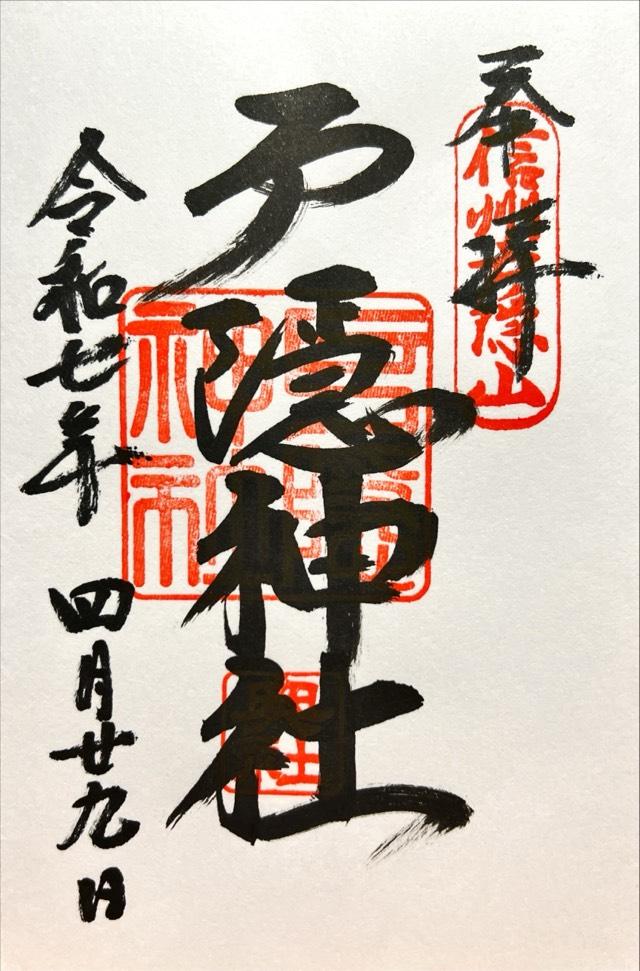 奉拝
信州戸隠山
戸隠神社
令和七年 四月廿九日